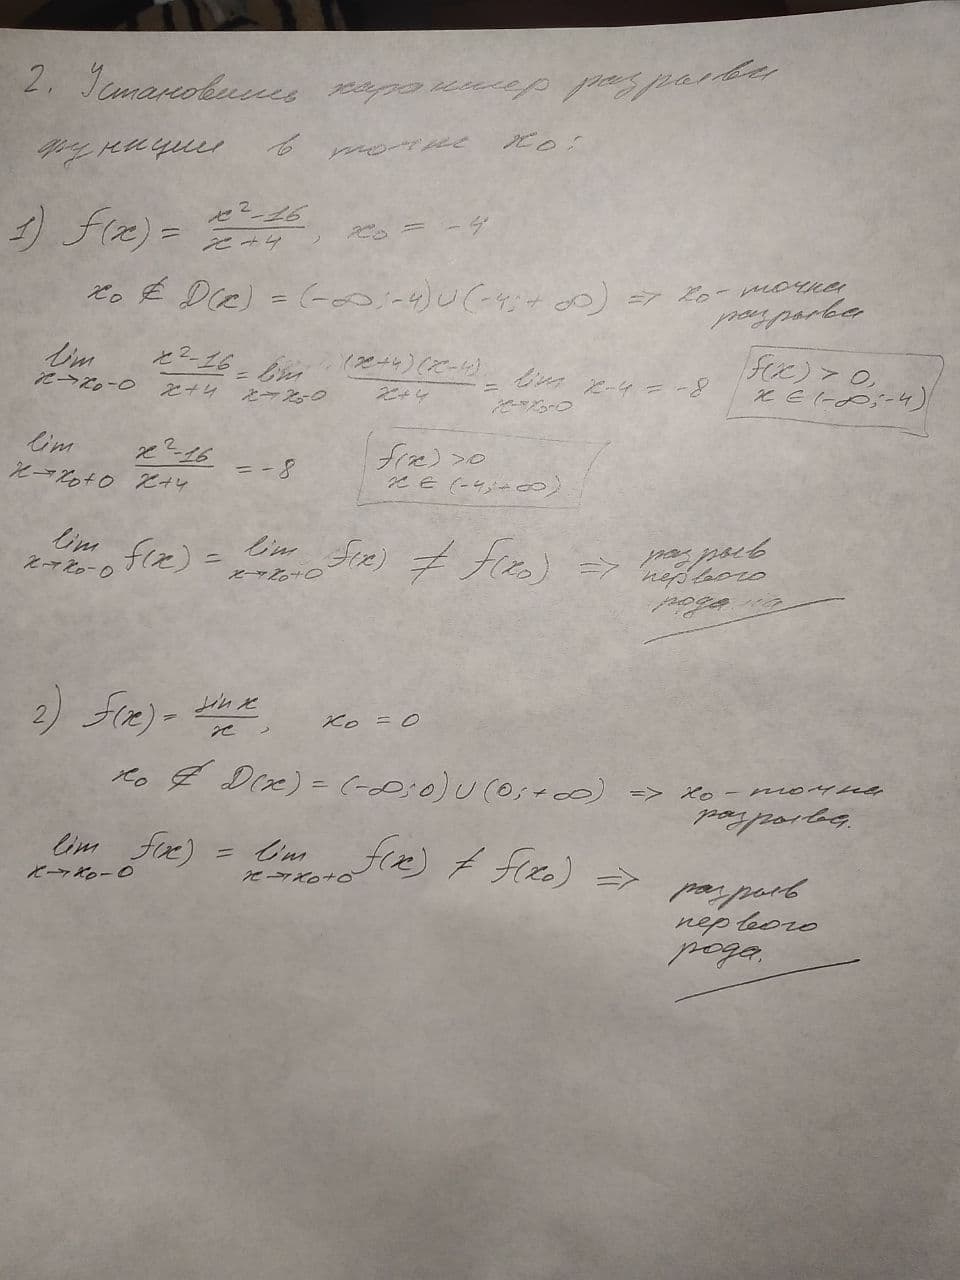 2. Установить характер разрыва
функции в точке x₀:
1) f(x) = (x²-16)/(x+4), x₀ = -4
x₀ ∉ D(x) = (-∞; -4) ∪ (-4; +∞) => x₀ - точка
разрыва
lim x→x₀-0 (x²-16)/(x+4) = lim x→x₀-0 ((x+4)(x-4))/(x+4) = lim x→x₀-0 x-4 = -8
f(x) > 0,
x ∈ (-∞; -4)
lim x→x₀+0 (x²-16)/(x+4) = -8
f(x) > 0
x ∈ (-4; +∞)
lim x→x₀-0 f(x) = lim x→x₀+0 f(x) ≠ f(x₀) => разрыв
первого
рода
2) f(x) = (sin x)/x, x₀ = 0
x₀ ∉ D(x) = (-∞; 0) ∪ (0; +∞) => x₀ - точка
разрыва.
lim x→x₀-0 f(x) = lim x→x₀+0 f(x) ≠ f(x₀) => разрыв
первого
рода.